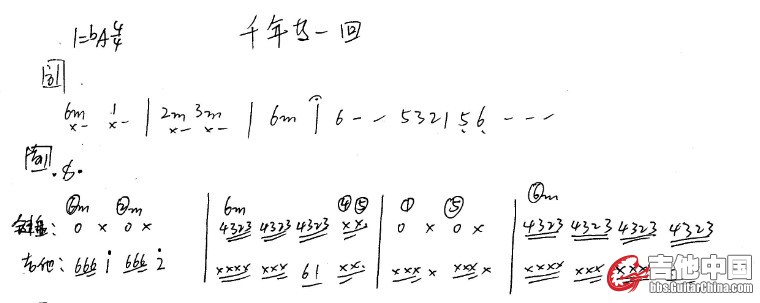 1=bA4/4 千年等一回
引
6m x- 1 x- | 2m x- 3m x- | 6m i 6 - - 532156 - - -
前引.8.
⑥m ②m 6m ④⑤ ① ⑤ ⑥m
键盘: 0 x 0 x | 4323 4323 4323 xx. | 0 x 0 x | 4323 4323 4323 4323
吉他: 666 i 666 2 | xxxx xxx 61 xx. | xxx x xxx x | xxxx xxx xxx
吉他中国
bbs.GuitarChina.com